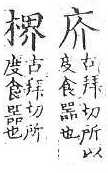 庎
古拜切所以
庋食器也
楐
古拜切所
度食器也